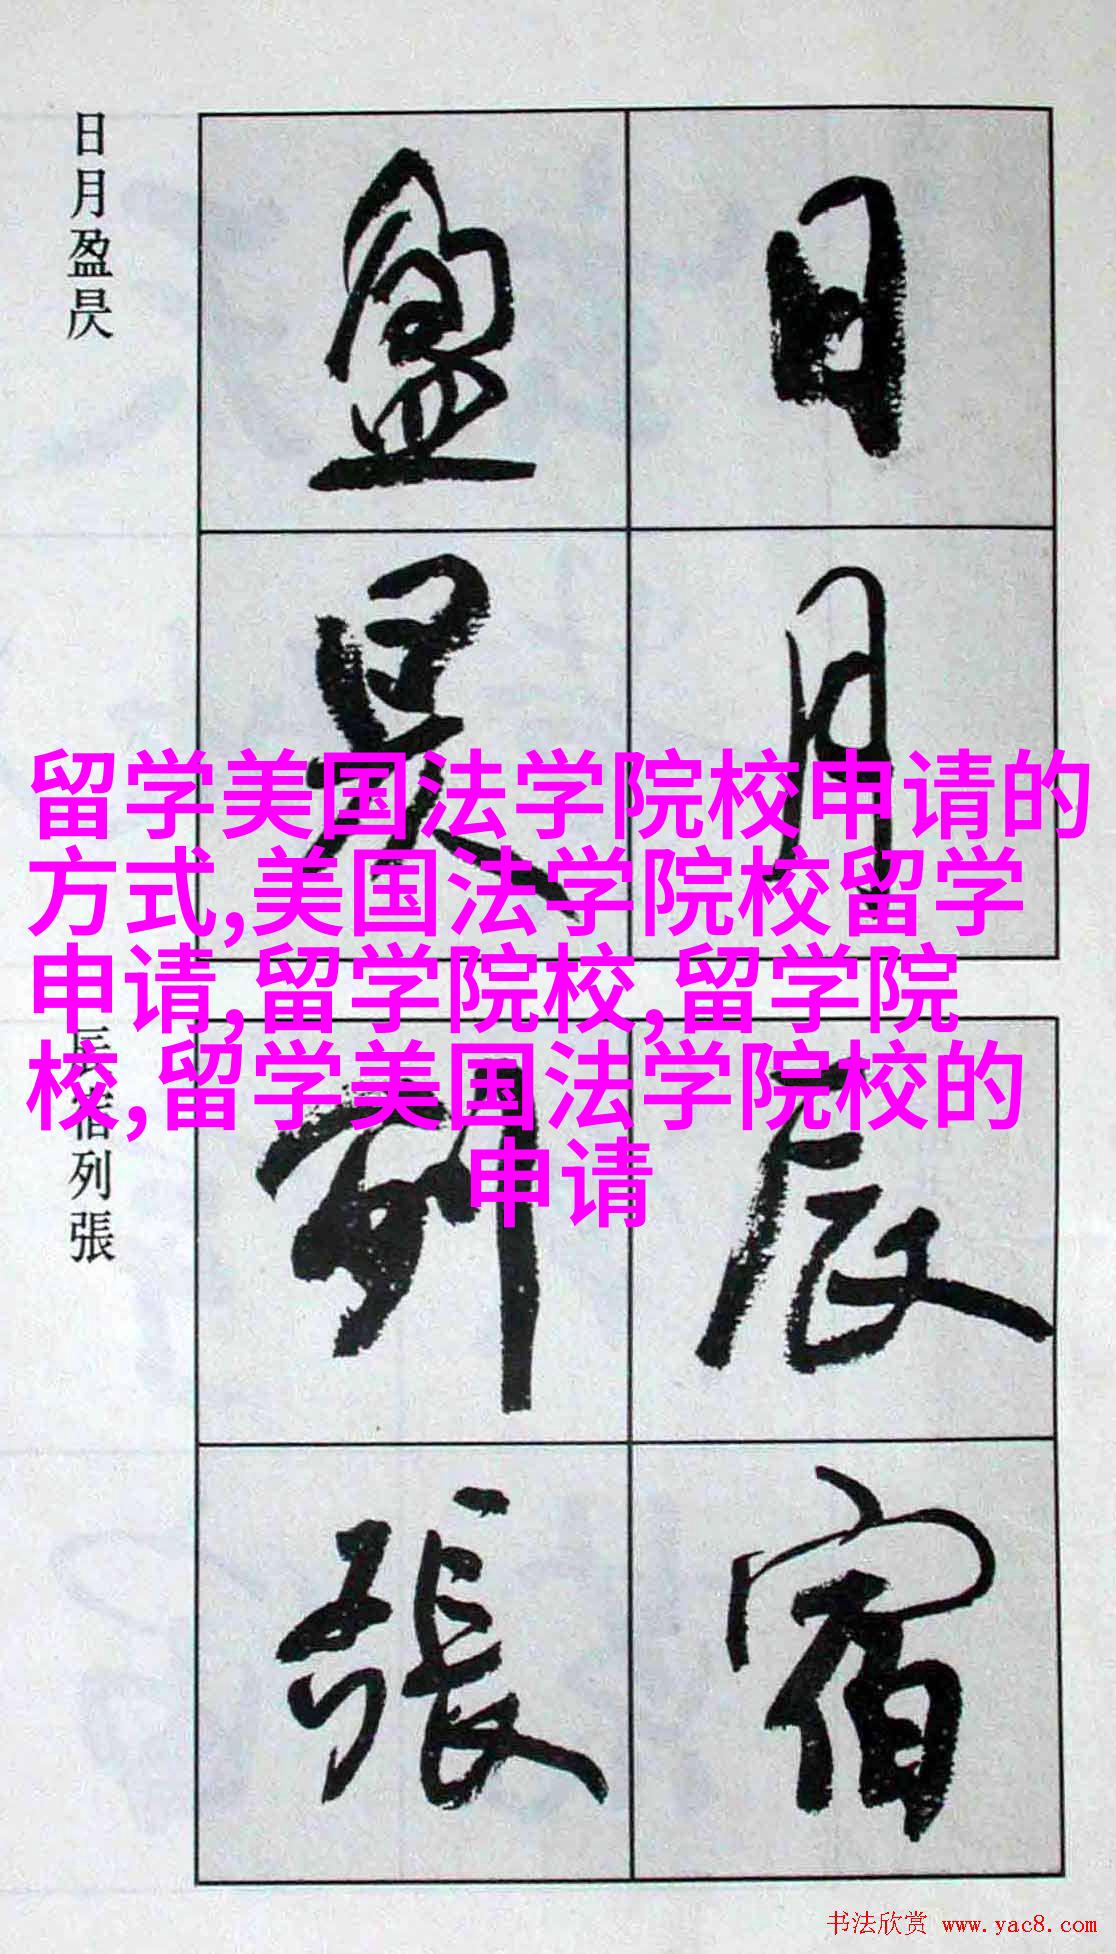 日月
盈昃
日月盈昃
留学美国法学院校申请的
方式,美国法学院校留学
申请,留学院校,留学院
校,留学美国法学院校的
申请
辰宿
列張
辰宿列張
书法欣赏 www.yac8.com